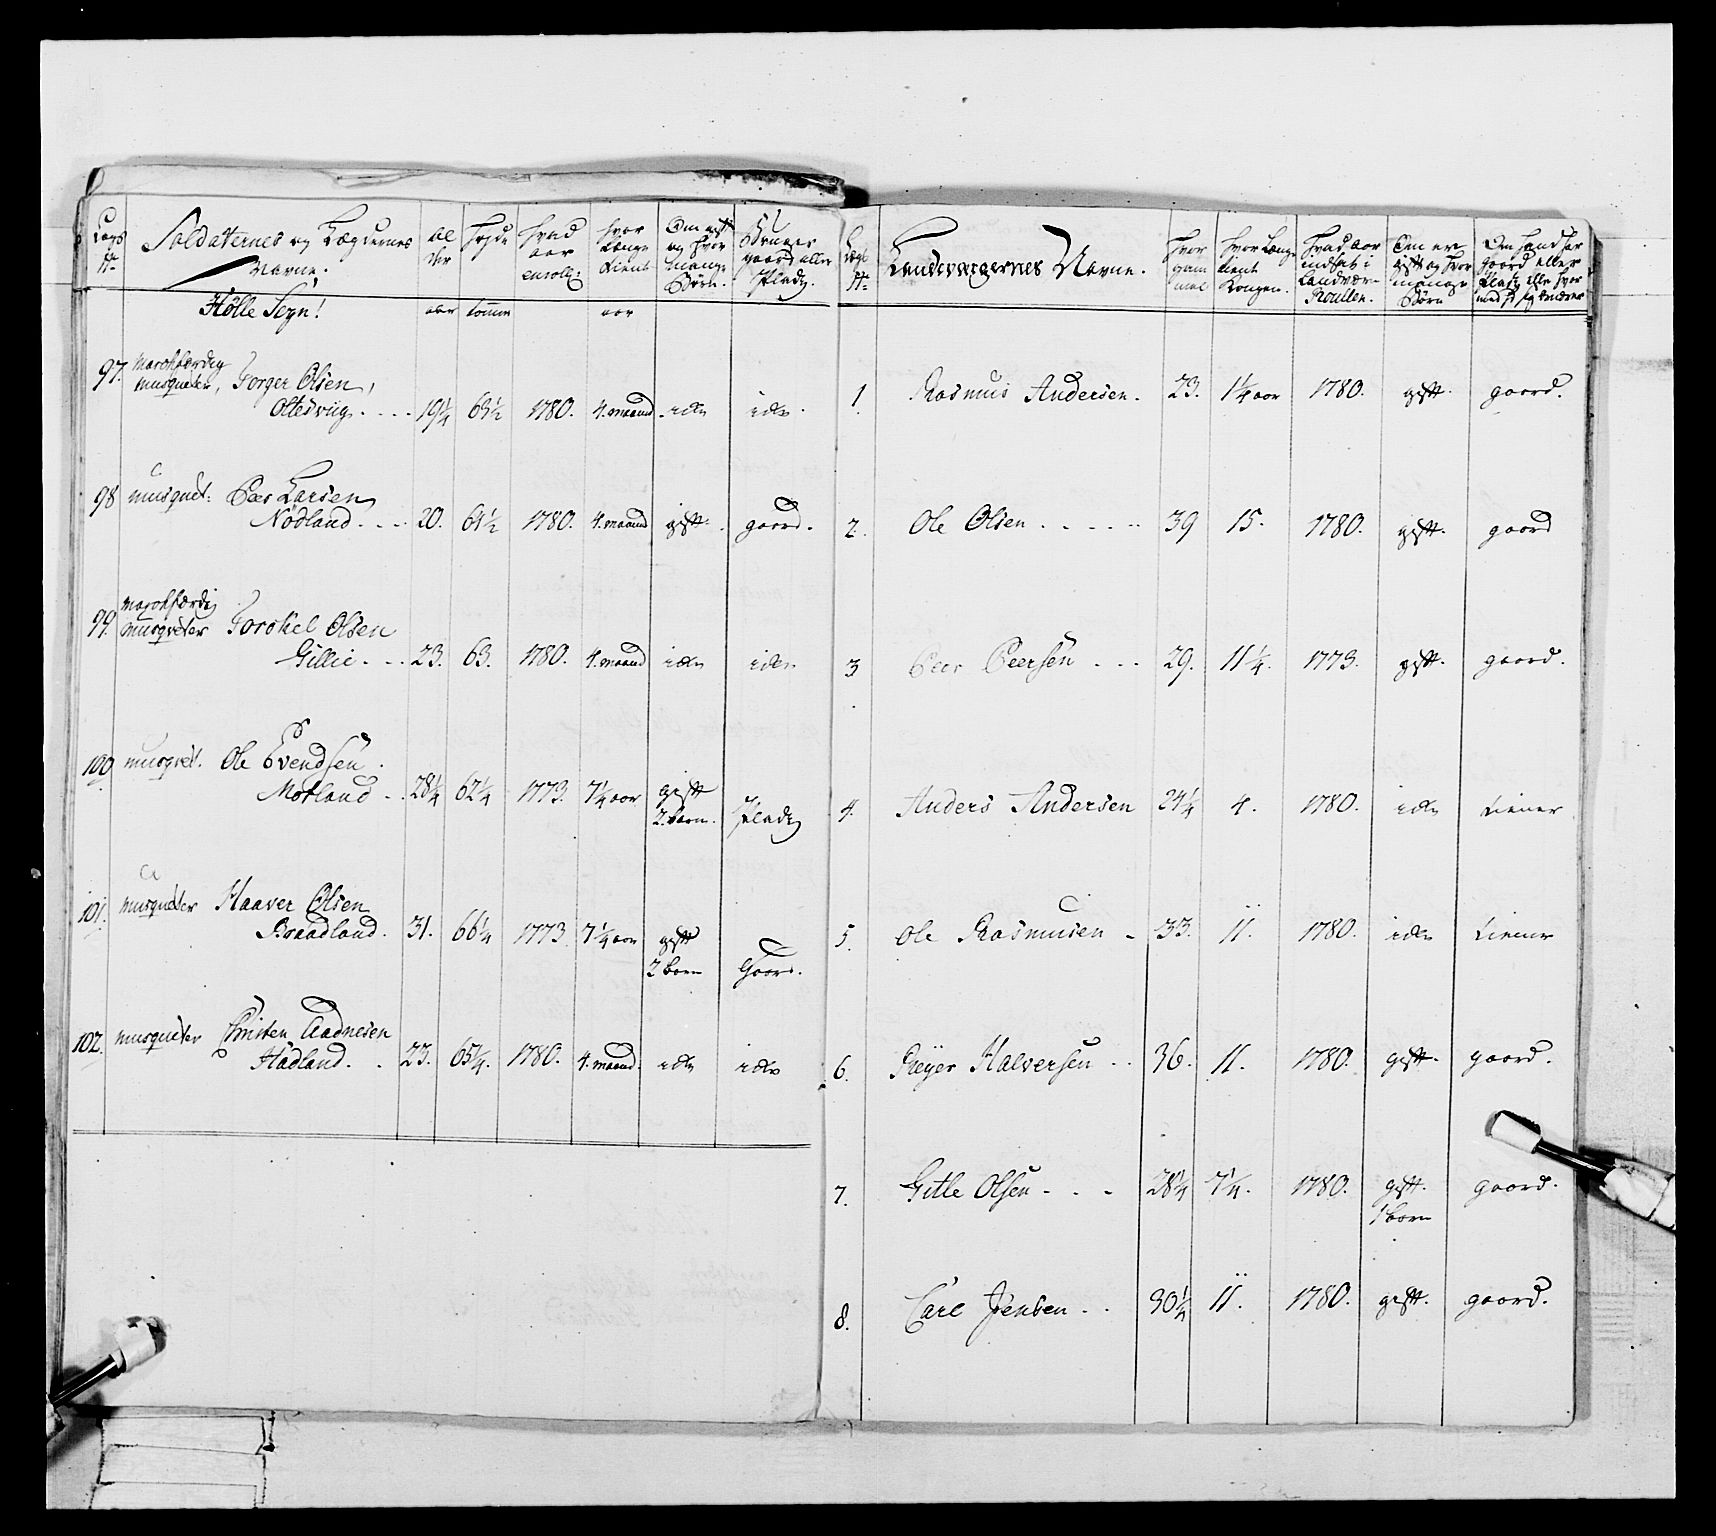 Lægs N: | Soldaternes og Lægdernes Navne. | Al der | Høyde | hvad aar enroll: | hvor længe tient | Om gift og hvor mange Børn. | Bruger gaard eller Pladz.
Hölle Sogn! | aar | tomme | aar
97. marchfærdig musqueter, Torger Olsen,
Oltedviig. 19 1/4 63 1/2 1780. 4. maaned. icke icke.
98 musquet: Peer Larsen
Nödland. 20. 64 1/2 1780. 4. maaned gift. gaard.
99. marchfærdig musqveter Torckel Olsen
Gillie. 23. 63. 1780. 4. maaned icke icke
100 musqvet. Ole Evendsen.
Motland 28 1/4 62 1/4 1773. 7 1/4 aar gift
2. barn. Pladz
101. musqueter Haaver Olsen
Braadland. 31. 66 1/4 1773 7 1/4 aar gift
2 barn Gaard.
102. musqueter Christen Aadnesen
Hädland. 23. 65 1/4. 1780. 4. maaned. icke icke
Lægs N: | Landeværgernes Navne. | hvor gam mel | hvor længe tient Kongen. | hvad aar indsat i Landværn Roullen. | Om er gift og hvor mange Børn | Om hand har gaard eller Pladz eller hvor med
1. Rasmus Andersen. 23. 1 1/4 aar 1780. gift. gaard.
2. Ole Olsen 39 15. 1780. gift. gaard
3 Peer Peersen 29. 11 1/4. 1773. gift. gaard.
4. Anders Andersen 24 1/4 4. 1780. icke tiener
5. Ole Rasmusen 33. 11. 1780. icke tiener
6. Reyer Halversen 36. 11. 1780. gift. gaard.
7. Gitle Olsen 28 1/4 7 1/4. 1780. gift. gaard.
1 barn
8. Carl Jensen 30 1/4 11. 1780. gift. gaard.